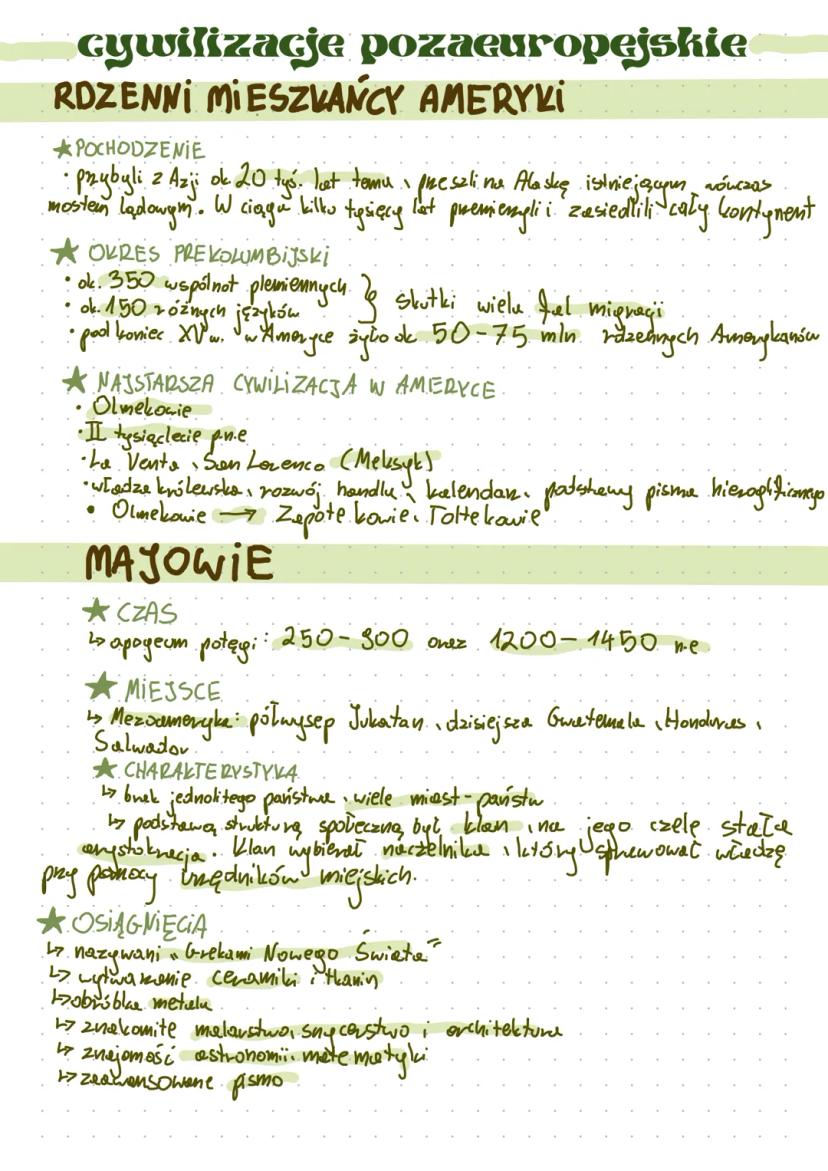 cywilizacje pozaeuropejskie
RDZENNI MIESZKAŃCY AMERYKI
★ POCHODZENIE
• przybyli z Azji ok 20 tyś. lat temu, przeszli na Alaskę istniejącym wówczas
mostem lądowym. W ciągu kilku tysięcy lat przemierzyli i zasiedlili cały kontynent
★ OKRES PREKOLUMBIJSKI
• ok. 350 wspólnot plemiennych
• ok. 150 różnych języków } skutki wielu fal migracji
• pod koniec XV w. w Ameryce żyło ok 50-75 mln rdzennych Amerykanów
★ NAJSTARSZA CYWILIZACJA W AMERYCE
• Olmekowie
• II tysiąclecie p.n.e
• La Venta, San Lorenco (Meksyk)
• władza królewska, rozwój handlu, kalendarz, podstawy pisma hieroglificznego
• Olmekowie → Zapotekowie i Toltekowie
MAJOWIE
★ CZAS
↳ apogeum potęgi: 250-900 oraz 1200-1450 n.e
★ MIEJSCE
↳ Mezoameryka: półwysep Jukatan, dzisiejsza Gwatemala, Honduras,
Salwador
★ CHARAKTERYSTYKA
↳ brak jednolitego państwa, wiele miast-państw
↳ podstawą strukturą społeczną był klan, na jego czele stała
arystokracja. Klan wybierał naczelnika, który sprawował władzę
przy pomocy urzędników miejskich.
★ OSIĄGNIĘCIA
↳ nazywani "Grekami Nowego Świata"
↳ wytwarzanie ceramiki i tkanin
↳ obróbka metalu
↳ znakomite malarstwo, snycerstwo i architektura
↳ znajomość astronomii i matematyki
↳ zaawansowane pismo